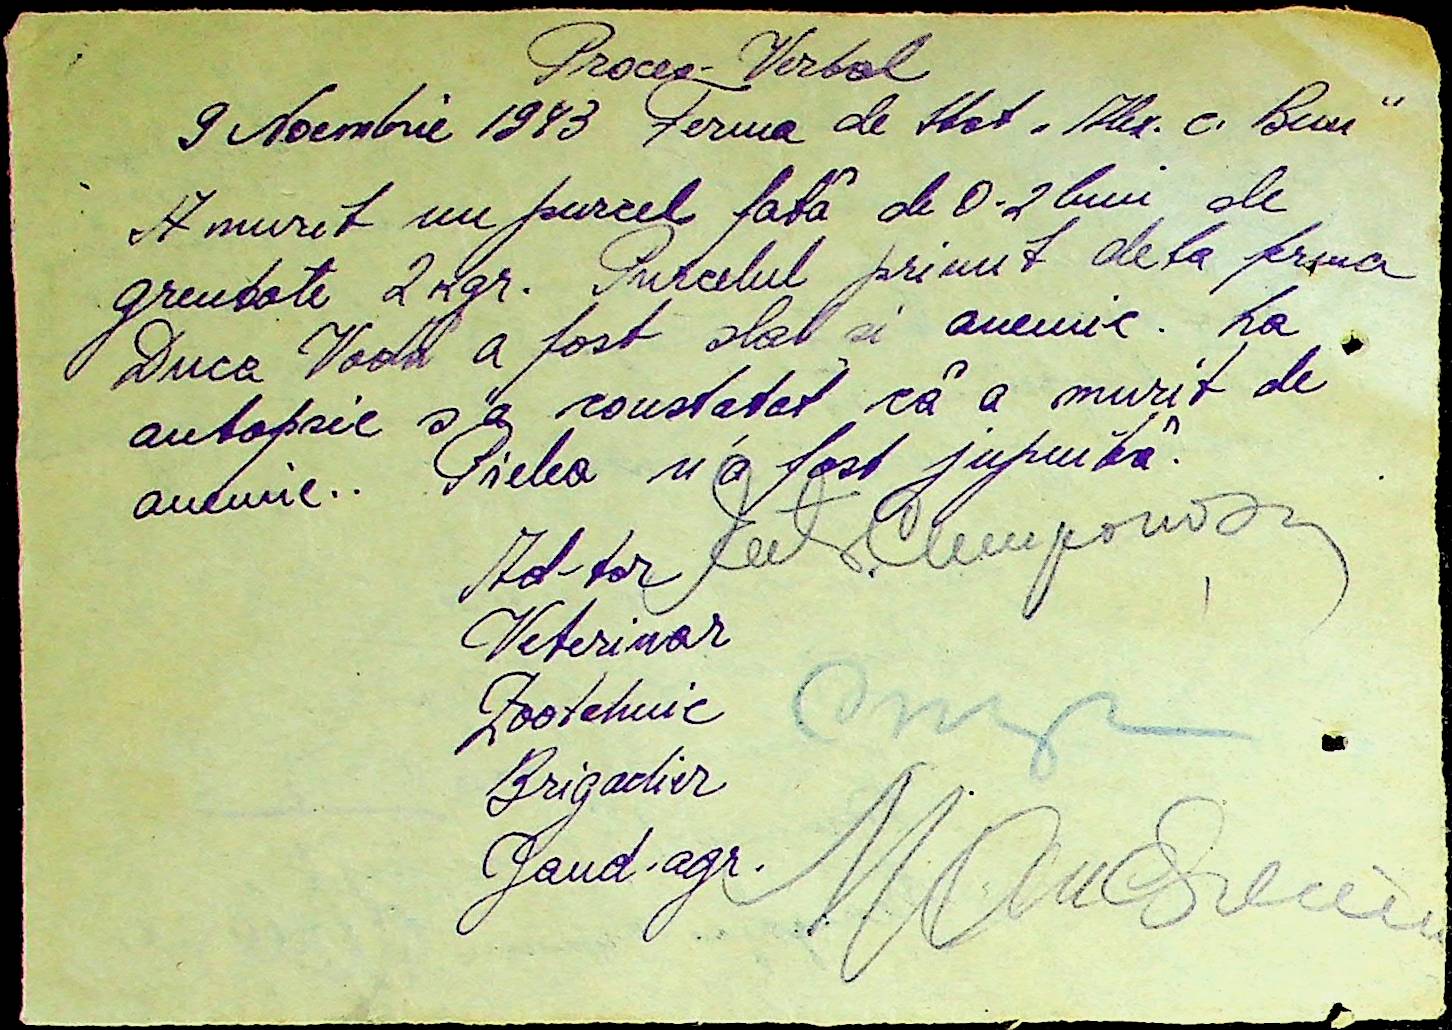 Proces-Verbal
9 Noembrie 1943 Ferma de Stat „Alex. c. Bun"
A murit un purcel fată de 0-2 luni de
greutate 2 kgr. Purcelul primit dela ferma
Duca Vodă a fost slab si anemic. La
autopsie s'a constatat că a murit de
anemie.. Pielea n'a fost jupuită.
Ad-tor
Veterinar
Zootehnic
Brigadier
Jand.agr.